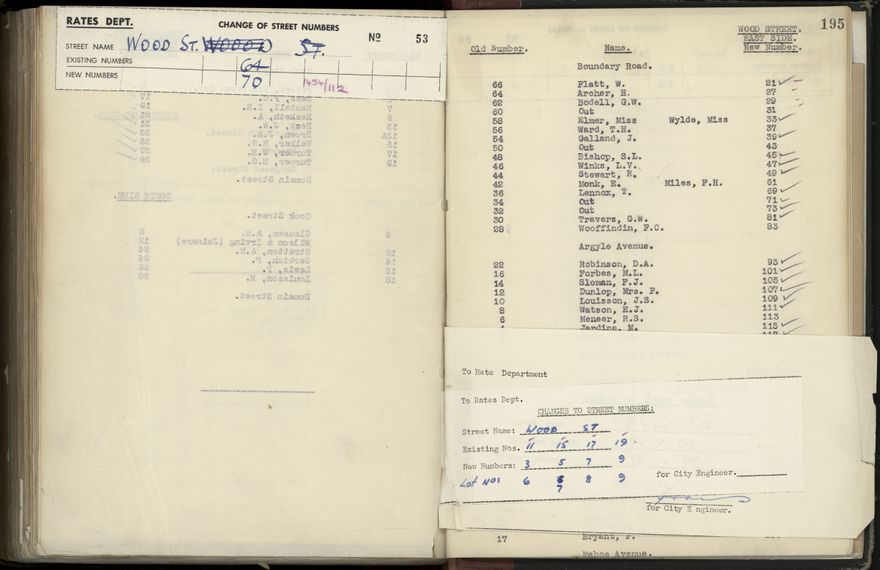 RATES DEPT.
CHANGE OF STREET NUMBERS
STREET NAME WOOD ST. WOOOD ST. Nº 53
EXISTING NUMBERS 64
NEW NUMBERS 70 1454/112
195
WOOD STREET.
EAST SIDE.
Old Number. Name. New Number.
Boundary Road.
66 Flatt, W. 21
64 Archer, H. 27
62 Bodell, G.W. 29
60 Out 31
58 Elmer, Miss Wylde, Miss 33
56 Ward, T.H. 37
54 Galland, J. 39
50 Out 43
48 Bishop, S.L. 45
46 Winks, L.V. 47
44 Stewart, R. 49
42 Monk, E. Miles, F.H. 61
36 Lennox, T. 69
34 Out 71
32 Out 73
30 Travers, G.W. 81
28 Wooffindin, F.C. 83
Argyle Avenue.
22 Robinson, D.A. 93
16 Forbes, M.L. 101
14 Sloman, F.J. 105
12 Dunlop, Mrs. F. 107
10 Louisson, J.S. 109
8 Watson, E.J. 111
6 Meneer, R.S. 113
Jardine, M. 115
To Rate Department
To Rates Dept.
CHANGES TO STREET NUMBERS:
Street Name: WOOD ST
Existing Nos. 11 15 17 19
New Numbers: 3 5 7 9
Lot Nos 6 8 9
7
for City Engineer.
for City Engineer.
17 Bryant, F.
Mahoe Avenue.